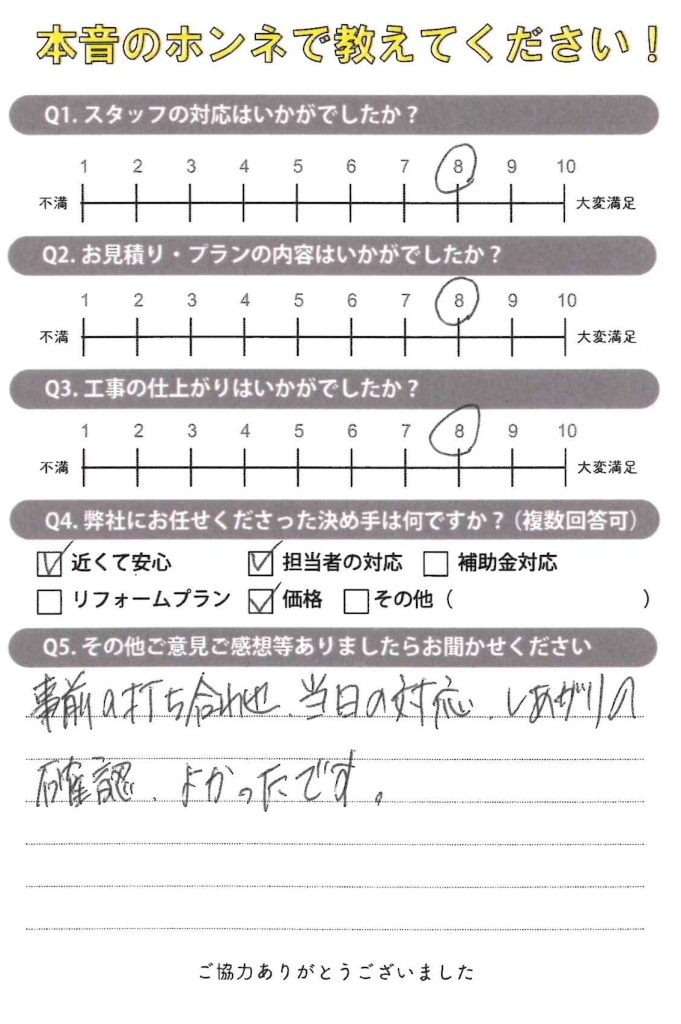 本音のホンネで教えてください！
Q1. スタッフの対応はいかがでしたか？
1 2 3 4 5 6 7 8 9 10
不満 大変満足
Q2. お見積り・プランの内容はいかがでしたか？
1 2 3 4 5 6 7 8 9 10
不満 大変満足
Q3. 工事の仕上がりはいかがでしたか？
1 2 3 4 5 6 7 8 9 10
不満 大変満足
Q4. 弊社にお任せくださった決め手は何ですか？（複数回答可）
近くて安心 担当者の対応 補助金対応
リフォームプラン 価格 その他（ ）
Q5. その他ご意見ご感想等ありましたらお聞かせください
事前の打ち合わせ、当日の対応、しあがりの
確認、よかったです。
ご協力ありがとうございました